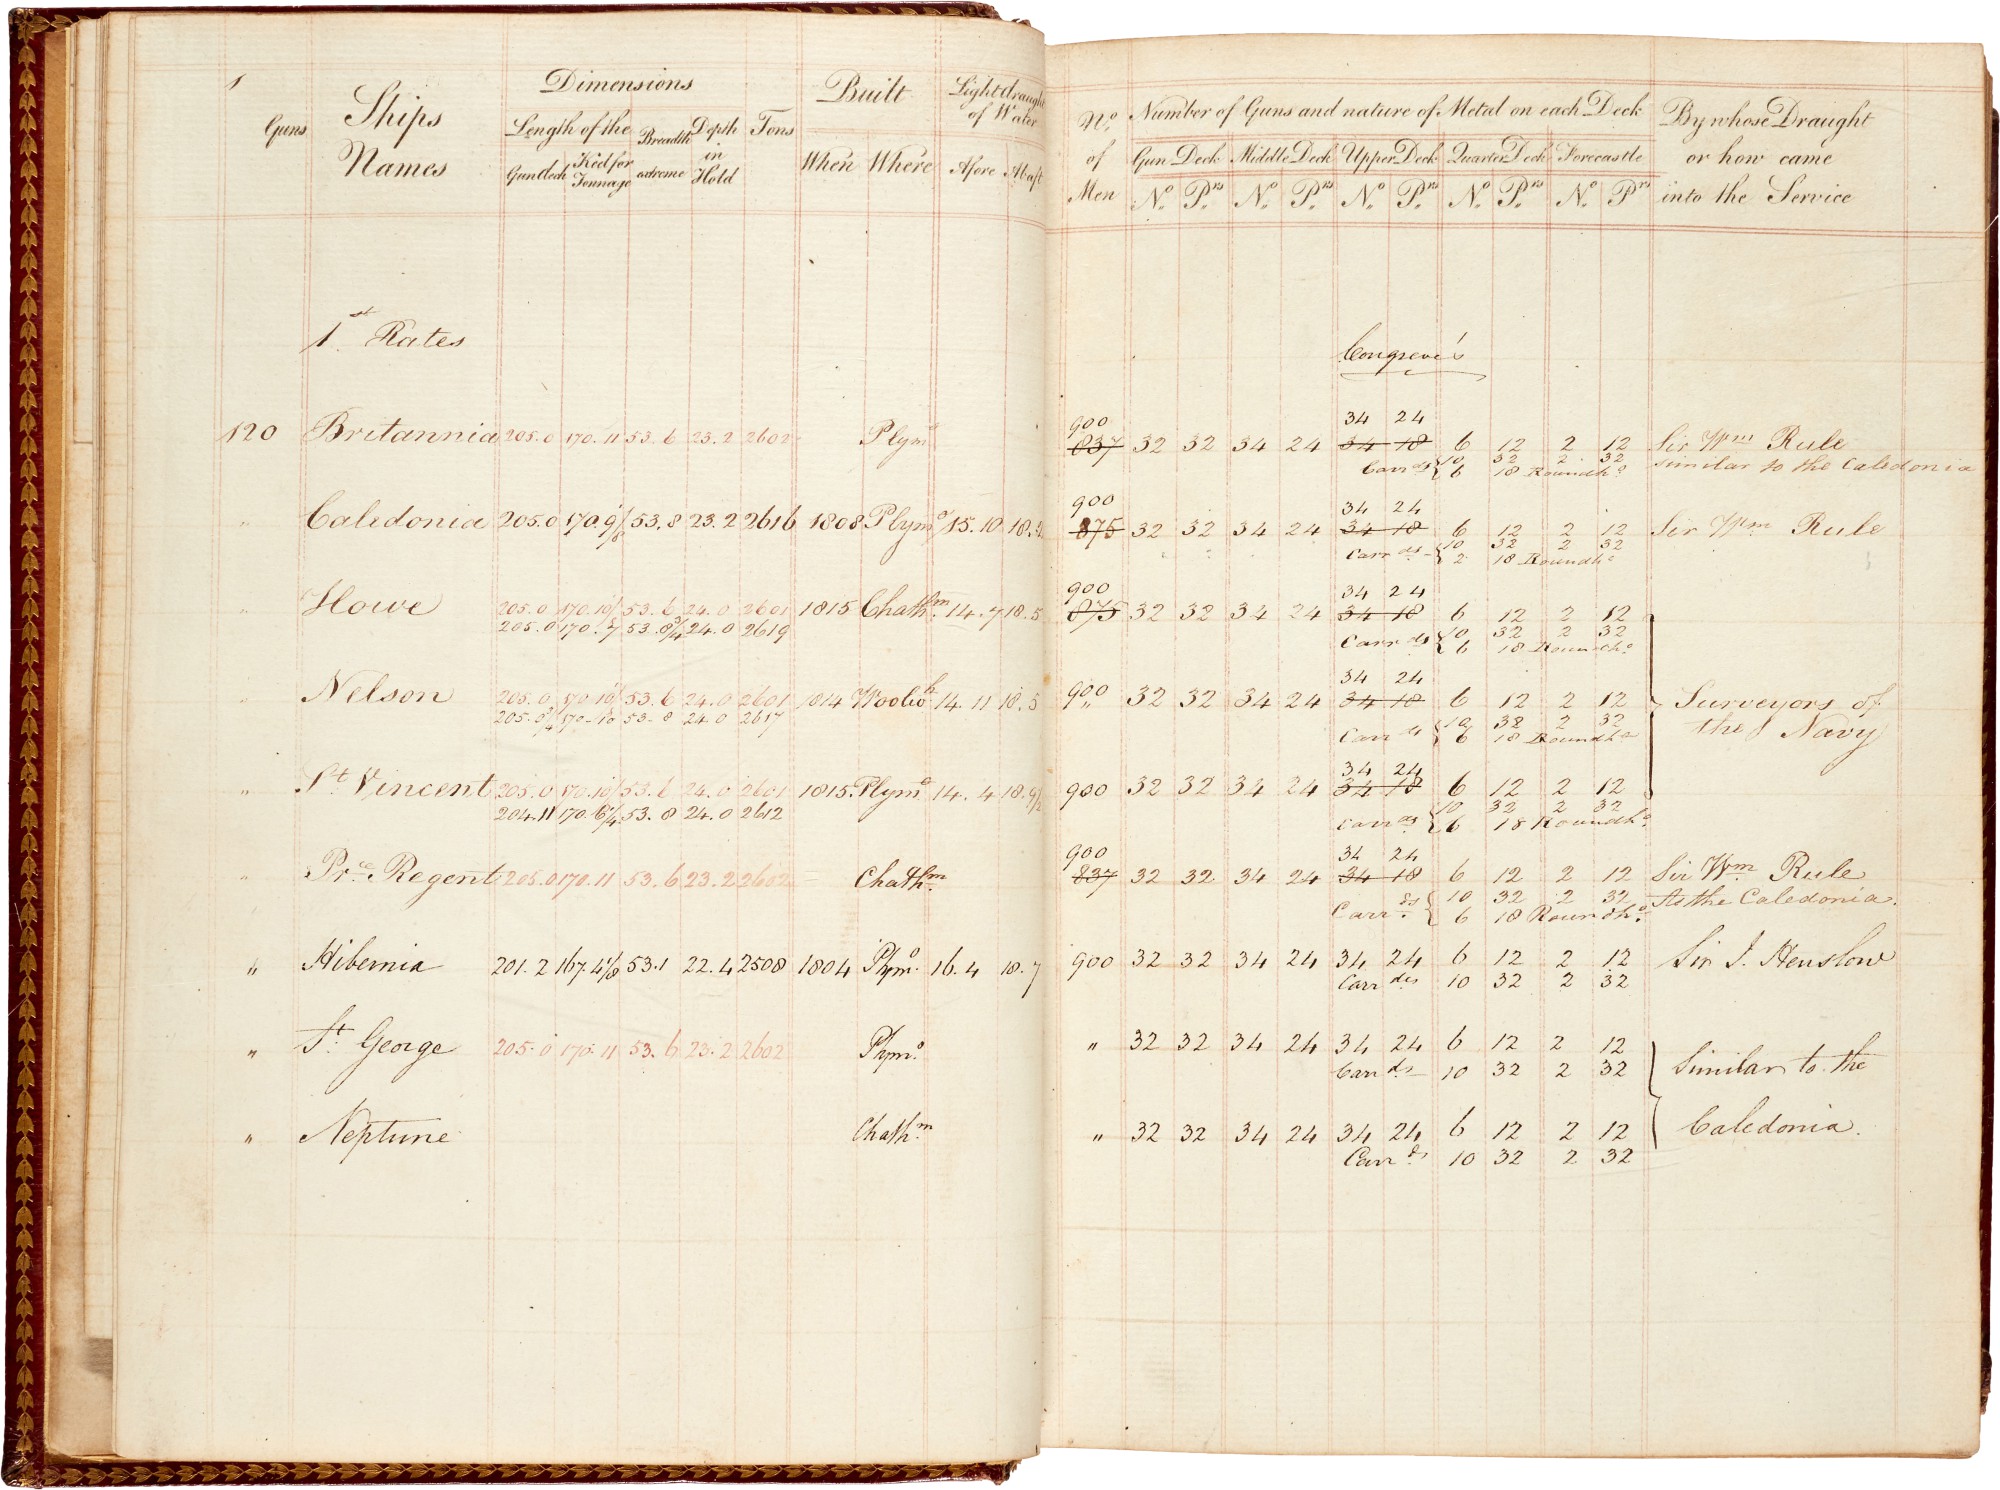 1
Guns Ships Names Dimensions Built Light draught of Water
Length of the Breadth extreme Depth in Hold Tons When Where Afore Abaft
Gundeck Keel for Tonnage
No. of Men Number of Guns and nature of Metal on each Deck By whose Draught or how came into the Service
Gun Deck Middle Deck Upper Deck Quarter Deck Forecastle
No. Prs. No. Prs. No. Prs. No. Prs. No. Prs
1st Rates
Congreve's
900 34 24
120 Britannia 205.0 170.11 53.6 23.2 2602 Plymo 837 32 32 34 24 34 18 6 12 2 12 Sir Wm Rule
Carrds 10 32 2 32 similar to the Caledonia
6 18 Roundho
900 34 24
" Caledonia 205.0 170.9 1/8 53.8 23.2 2616 1808 Plymo 15.10 18. 875 32 32 34 24 34 18 6 12 2 12 Sir Wm Rule
Carrds 10 32 2 32
2 18 Roundho
900 34 24
" Howe 205.0 170.10 53.6 24.0 2601 1815 Chathm 14.7 18.5 875 32 32 34 24 34 18 6 12 2 12
205.0 170.7 53.8 3/4 24.0 2619 Carrds 10 32 2 32
6 18 Roundho
34 24
" Nelson 205.0 170.10 53.6 24.0 2601 1814 Woolwh 14.11 18.5 900 32 32 34 24 34 18 6 12 2 12 Surveyors of
205.0 3/4 170.10 53.8 24.0 2617 Carrds 10 32 2 32 the Navy
6 18 Roundho
34 24
" St Vincent 205.0 170.10 53.6 24.0 2601 1815 Plymo 14.4 18.9 1/2 900 32 32 34 24 34 18 6 12 2 12
204.11 170.6 1/4 53.8 24.0 2612 Carrds 10 32 2 32
6 18 Roundho
900 34 24
" Prce Regent 205.0 170.11 53.6 23.2 2602 Chathm 837 32 32 34 24 34 18 6 12 2 12 Sir Wm Rule
Carrds 10 32 2 32 As the Caledonia.
6 18 Roundho
" Hibernia 201.2 167.4 1/8 53.1 22.4 2508 1804 Plymo 16.4 18.7 900 32 32 34 24 34 24 6 12 2 12 Sir J. Henslow
Carrds 10 32 2 32
" St George 205.0 170.11 53.6 23.2 2602 Plymo " 32 32 34 24 34 24 6 12 2 12
Carrds 10 32 2 32 Similar to the
" Neptune Chathm " 32 32 34 24 34 24 6 12 2 12 Caledonia.
Carrds 10 32 2 32